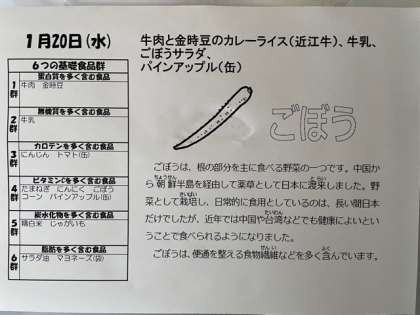 1月20日(水)
牛肉と金時豆のカレーライス(近江牛)、牛乳、
ごぼうサラダ、
パインアップル(缶)
6つの基礎食品群
蛋白質を多く含む食品
1群
牛肉 金時豆
無機質を多く含む食品
2群
牛乳
カロテンを多く含む食品
3群
にんじん トマト(缶)
ビタミンCを多く含む食品
4群
たまねぎ にんにく ごぼう
コーン パインアップル(缶)
炭水化物を多く含む食品
5群
精白米 じゃがいも
脂肪を多く含む食品
6群
サラダ油 マヨネーズ(袋)
ごぼう
ごぼうは、根の部分を主に食べる野菜の一つです。中国か
ちょうせん とらい
ら朝鮮半島を経由して薬草として日本に渡来しました。野
さいばい
菜として栽培し、日常的に食用としているのは、長い間日本
たいわん
だけでしたが、近年では中国や台湾などでも健康によいとい
うことで食べられるようになりました。
せんい ふく
ごぼうは、便通を整える食物繊維などを多く含んでいます。